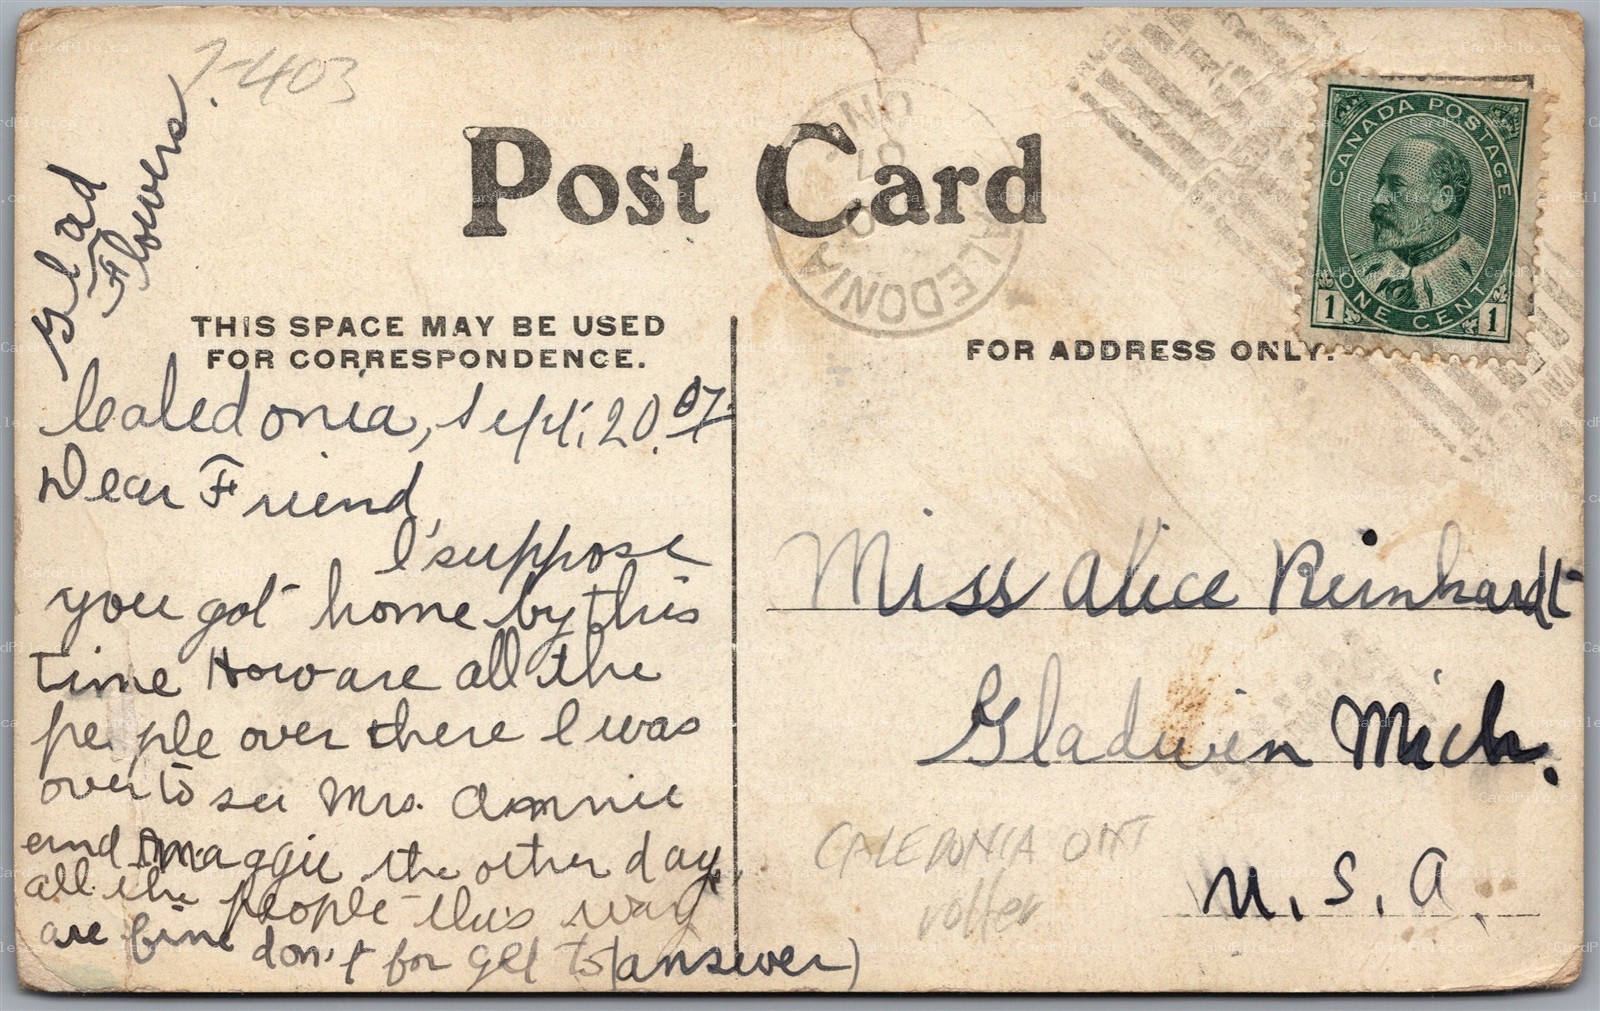 7-403
Glad
Flowers
Post Card
CALEDONIA
ONT
07
CANADA POSTAGE
1 ONE CENT 1
THIS SPACE MAY BE USED
FOR CORRESPONDENCE.
FOR ADDRESS ONLY.
Caledonia, Sept, 20. 07.
Dear Friend,
I suppose
you got home by this
time How are all the
people over there I was
over to see Mrs. Annie
and Maggie the other day,
all the people this way
are fine don't for get to (answer)
Miss Alice Reinhardt
Gladwin Mich.
U.S.A.
CALEDONIA ONT
roller
CardPile.ca